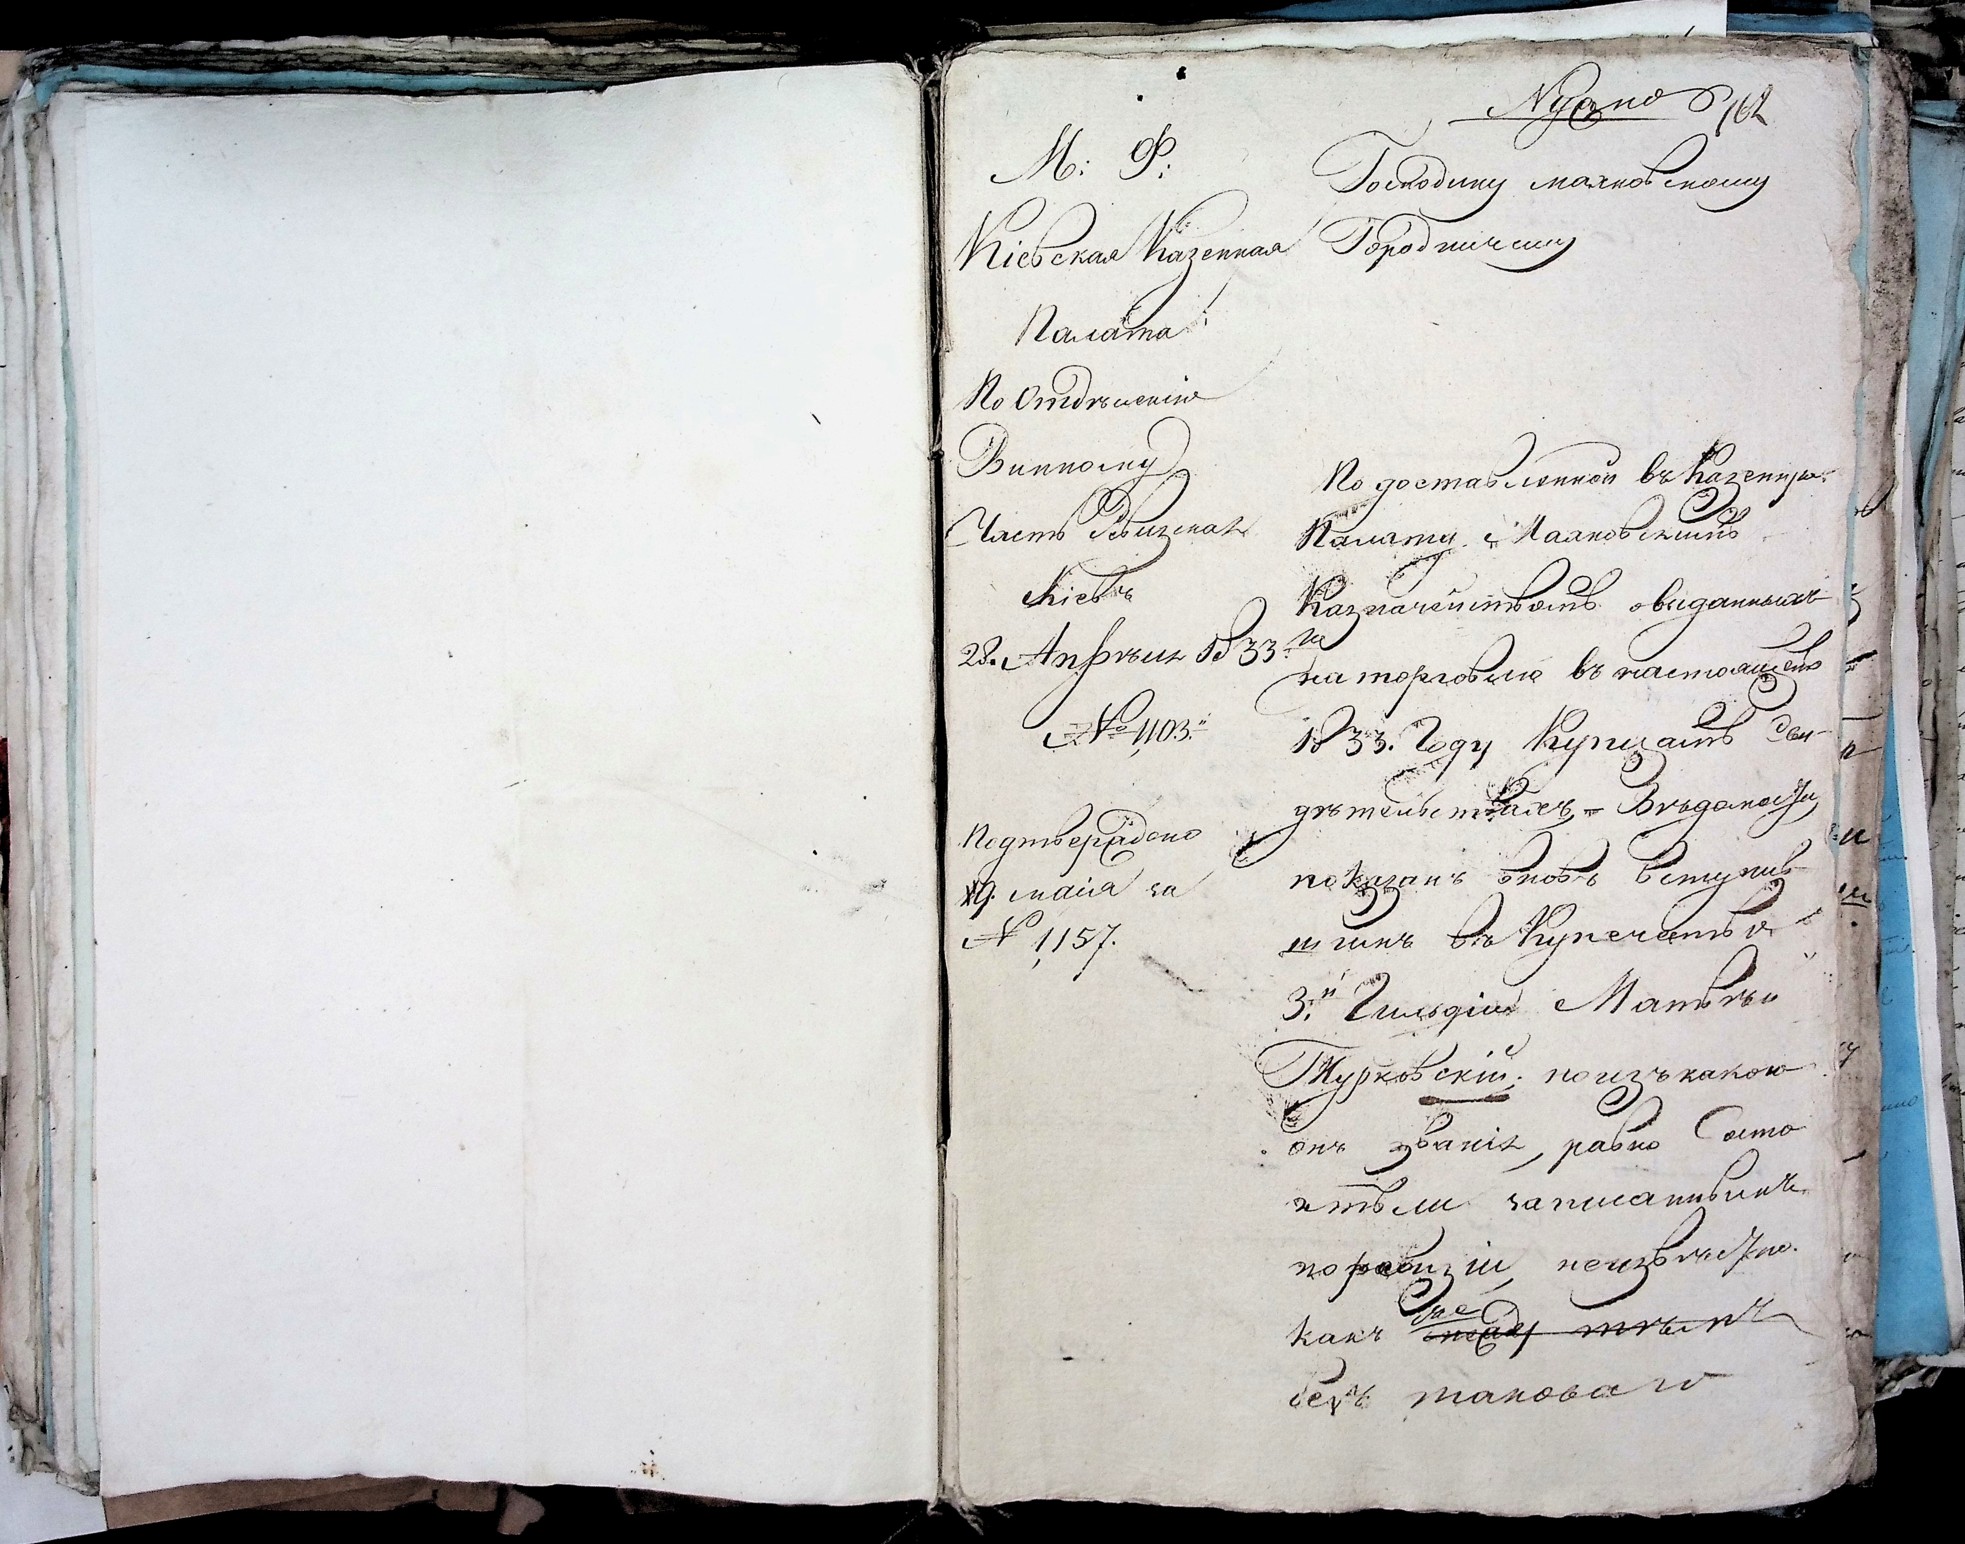 Нужное
162
М: Ф:
Кіевская Казенная
Палата
По Отдѣленію
Винному
Часть Ревизская
Кіевъ
28. Апрѣля 1833.го
№ 1103.
Подтверждено
19. маія за
№ 1157.
Господину маяновскому
Городничему
По доставленной въ Казенную
Палату Маяновскимъ
Казначействомъ овыданныхъ
на торговлю въ настоящемъ
1833. Году Купцамъ Сви-
дѣтельствахъ Вѣдомости
показанъ вновь вступив
шимъ въ Купечество
3.й Гильдіи Матвѣй
Турковскій; но изъ какого
онъ званія, равно Состо
итъ ли записаннымъ
по ревизіи, неизвѣстно.
какъ же между тѣмъ
безъ таковаго